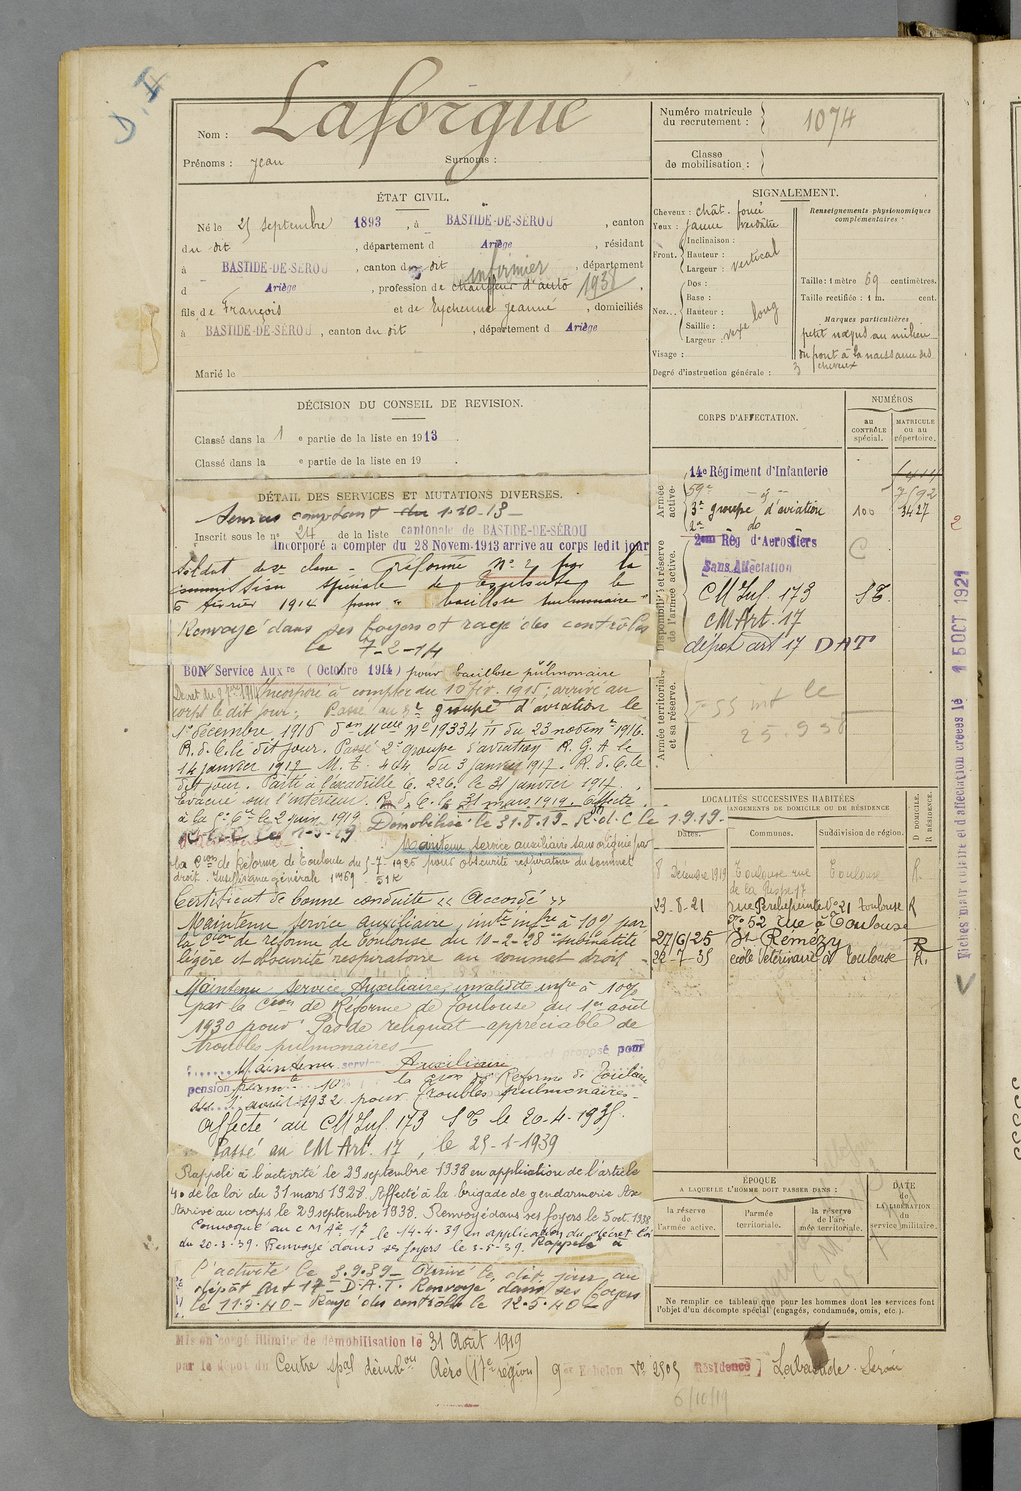 D. A
Laforgue
Nom :
Prénoms : Jean Surnoms :
Numéro matricule du recrutement : 1074
Classe de mobilisation :
ÉTAT CIVIL.
Né le 25 septembre 1893, à BASTIDE-DE-SÉROU, canton
du dit, département d Ariège, résidant
à BASTIDE-DE-SÉROU, canton du dit, département
d Ariège, profession de chauffeur d'auto infirmier 1931,
fils de François et de Eychenne Jeanne, domiciliés
à BASTIDE-DE-SÉROU, canton du dit, département d Ariège
Marié le
SIGNALEMENT.
Cheveux : chât. foncé
Yeux : jaune verdâtre
Front. Inclinaison :
Hauteur : vertical
Largeur :
Nez.. Dos :
Base :
Hauteur :
Saillie : vexe long
Largeur :
Visage :
Degré d'instruction générale : 3
Renseignements physionomiques complémentaires :
Taille : 1 mètre 69 centimètres.
Taille rectifiée : 1 m. cent.
Marques particulières
petit nœvus au milieu
du front à la naissance des
cheveux
DÉCISION DU CONSEIL DE REVISION.
Classé dans la 1 e partie de la liste en 1913
Classé dans la e partie de la liste en 19 .
DÉTAIL DES SERVICES ET MUTATIONS DIVERSES.
Services comptant du 1-10-13
Inscrit sous le n° 24 de la liste cantonale de BASTIDE-DE-SÉROU
Incorporé à compter du 28 Novem. 1913 arrivé au corps ledit jour
Soldat de 2e classe - Réformé N° 2 par la
commission spéciale de Toulouse le
6 février 1914 pour "bacillose pulmonaire"
Renvoyé dans ses foyers et rayé des contrôles
le 7-2-14
BON Service Auxre (Octobre 1914) pour bacillose pulmonaire
Incorporé à compter du 10 fév. 1915, arrivé au
corps le dit jour. Passé au 3e groupe d'aviation le
1er décembre 1916 don Melle N° 19334 1/11 du 23 novembre 1916.
R. d. C. le dit jour. Passé 2e groupe d'aviation R. G. A le
14 janvier 1917 M. t. 464 du 3 janvier 1917. R. d. C. le
dit jour. Parti à l'escadrille C. 226 le 31 janvier 1917.
Evacué sur l'intérieur. R. d. C. le 31 mars 1919. Affecté
à la Cie le 2 juin 1919. Démobilisé le 31.8.19 - R. d. C le 1.9.19.
Maintenu service auxiliaire sans origine par
la Cion de Réforme de Toulouse du 5-7-1925 pour obscurité respiratoire du sommet
droit. Insuffisance générale 1m69. 51K
Certificat de bonne conduite « Accordé »
Maintenu Service auxiliaire, invté infre à 10% par
la Cion de réforme de Toulouse du 10-2-28 submatité
légère et obscurité respiratoire au sommet droit
Maintenu Service Auxiliaire, invalidité infre à 10%
par la Cion de Réforme de Toulouse du 1er août
1930 pour Pas de reliquat appréciable de
troubles pulmonaires
Maintenu service Auxiliaire et proposé pour
pension perm 10% la Cion de Réforme de Toulouse
1932 pour Troubles pulmonaires
Affecté au CM Inf. 173 ST le 20-4-1935.
Passé au CM Art. 17, le 25-1-1939
Rappelé à l'activité le 29 septembre 1938 en application de l'article
40 de la loi du 31 mars 1928. Affecté à la brigade de gendarmerie Ax
Arrivé au corps le 29 septembre 1938. Renvoyé dans ses foyers le 5 oct. 1938
Convoqué au C M Aie 17 le 14-4-39 en application du décret loi
du 20-3-39. Renvoyé dans ses foyers le 3-5-39. Rappelé à
l'activité le 3.9.39 - Arrivé le dit jour au
dépôt Art 17 - D.A.T. Renvoyé dans ses foyers
le 11.5.40 - Rayé des contrôles le 12.5.40
CORPS D'AFFECTATION.
NUMÉROS
AU CONTRÔLE spécial.
MATRICULE OU AU répertoire.
Armée active.
Disponibilité et réserve de l'armée active.
Armée territoriale et sa réserve.
14e Régiment d'Infanterie
59e
7592
3e groupe d'aviation 100 3427
2e do
2ème Rég d'Aérostiers
Sans Affectation C
CM Inf. 173 ST.
CM Art. 17
dépôt art 17 DAT
LOCALITÉS SUCCESSIVES HABITÉES
CHANGEMENTS DE DOMICILE OU DE RÉSIDENCE
D DOMICILE. R RÉSIDENCE.
Dates. Communes. Subdivision de région.
8 Décembre 1919 Toulouse rue Toulouse R.
23.8.21 rue Perchepeinte N° 21 Toulouse R
N° 52 rue à Toulouse
27/6/25 St Rémézy R
22-7-35 école Vétérinaire à Toulouse R.
ÉPOQUE
A LAQUELLE L'HOMME DOIT PASSER DANS :
la réserve de l'armée active.
l'armée territoriale.
la réserve de l'armée territoriale.
DATE de LA LIBÉRATION du service militaire.
Ne remplir ce tableau que pour les hommes dont les services font
l'objet d'un décompte spécial (engagés, condamnés, omis, etc.).
Fiches matricule et d'affectation créées le 15 OCT 1921
2
Mis en congé illimité de démobilisation le 31 Août 1919
par le dépôt du Centre spal démobon Aéro (17e région) 9e Echelon N° 2505 Résidence Labastide Sérou
6/10/19